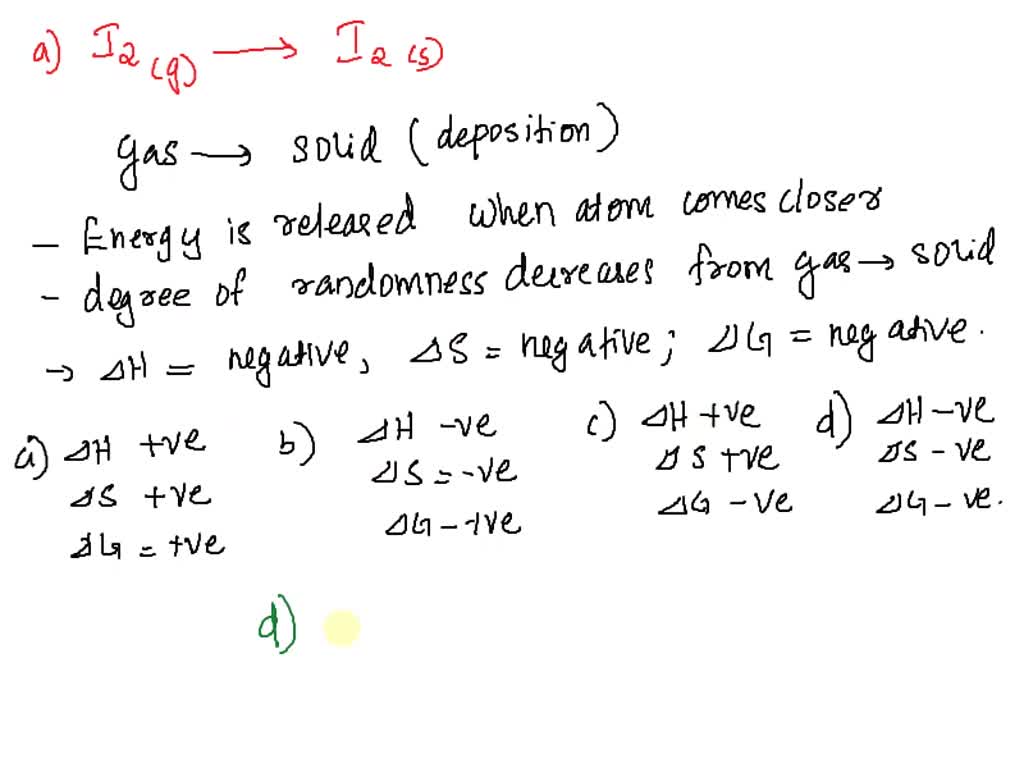 a) I2(g) → I2(s)
gas → solid (deposition)
- Energy is released when atom comes closer
- degree of randomness decreases from gas → solid
→ ΔH = negative, ΔS = negative; ΔG = negative.
a) ΔH +ve
ΔS +ve
ΔG = +ve
b) ΔH -ve
ΔS = -ve
ΔG - +ve
c) ΔH +ve
ΔS +ve
ΔG - ve
d) ΔH - ve
ΔS - ve
ΔG - ve.
d)